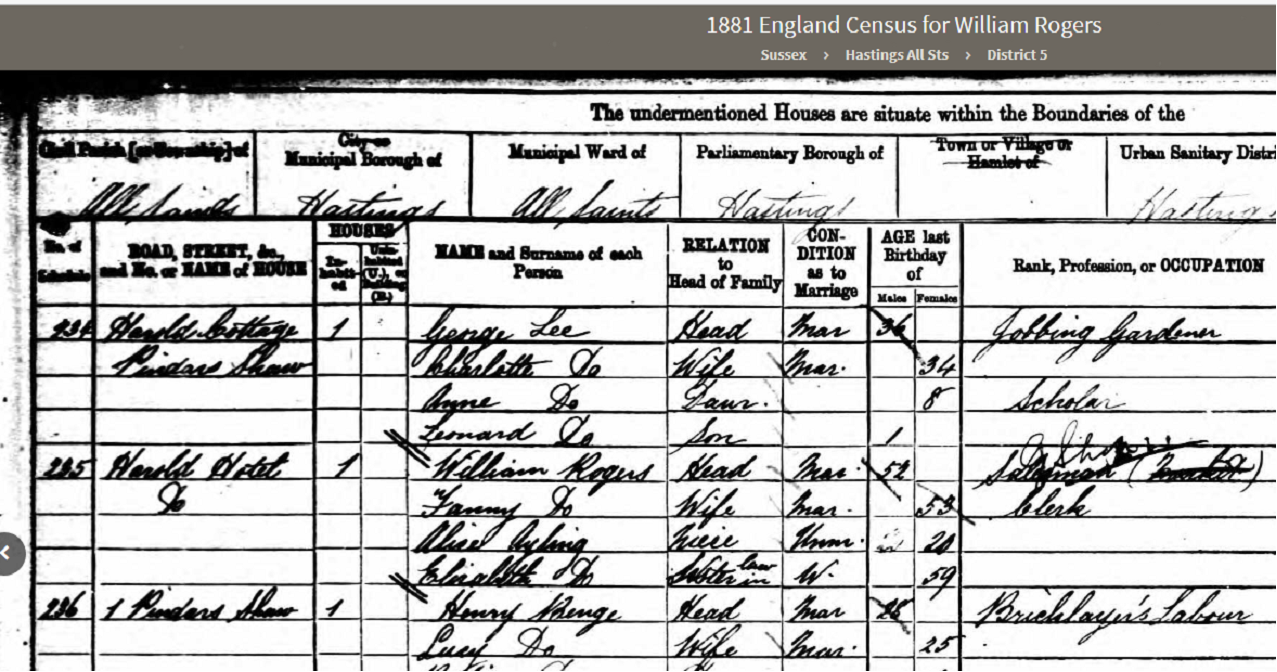 1881 England Census for William Rogers
Sussex > Hastings All Sts > District 5
The undermentioned Houses are situate within the Boundaries of the
Civil Parish [or Township] of City or Municipal Borough of Municipal Ward of Parliamentary Borough of Town or Village or Hamlet of Urban Sanitary Distri
All Saints Hastings All Saints Hastings Hastings
No. of Schedule ROAD, STREET, &c., and No. or NAME of HOUSE HOUSES Inhabited Uninhabited (U.), or Building (B.) NAME and Surname of each Person RELATION to Head of Family CONDITION as to Marriage AGE last Birthday of Males Females Rank, Profession, or OCCUPATION
234 Harold Cottage 1 George Lee Head Mar 36 Jobbing Gardener
Pindars Shaw Charlotte Do Wife Mar. 34
Anne Do Daur. 8 Scholar
Leonard Do Son 1
235 Harold Hotel 1 William Rogers Head Mar. 52
Do Fanny Do Wife Mar. 53 Clerk
Alise Ayling Niece Unm. 20
Elizabeth Do Sister in law W. 59
236 1 Pindars Shaw 1 Henry Benge Head Mar 26 Bricklayer's Labour
Lucy Do Wife Mar. 25